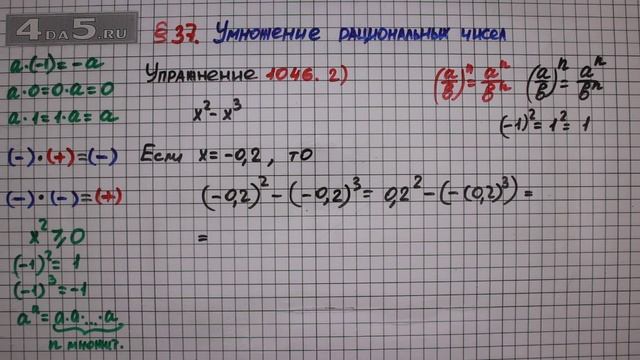 4DA5.RU
§ 37. Умножение рациональных чисел
a·(-1)=-a
a·0=0·a=0
a·1=1·a=a
(-)·(+)=(-)
(-)·(-)=(+)
x²⩾0
(-1)²=1
(-1)³=-1
aⁿ=a·a·...·a
n множит.
Упражнение 1046. 2)
(a/b)ⁿ=aⁿ/bⁿ (a/b)ⁿ=aⁿ/bⁿ
x²-x³
(-1)²=1²=1
Если x=-0,2, то
(-0,2)²-(-0,2)³=0,2²-(-(0,2)³)=
=